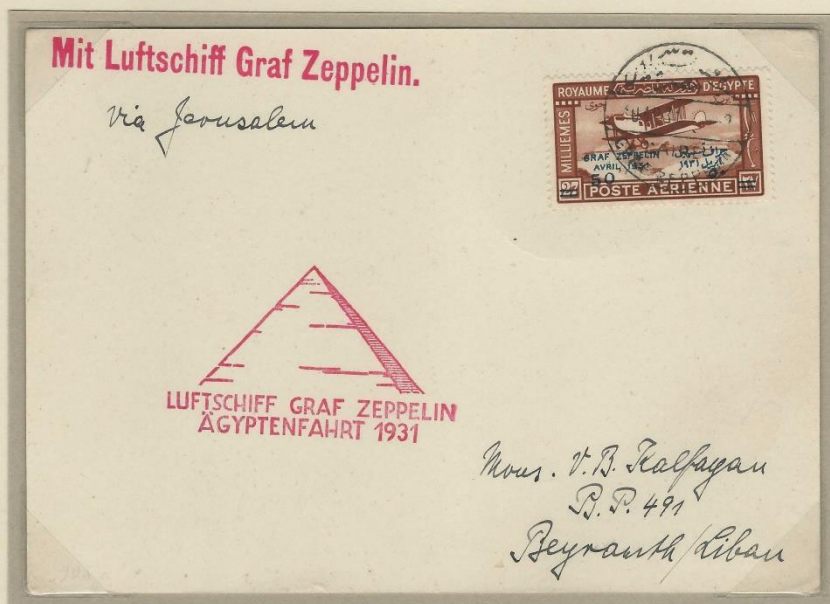 Mit Luftschiff Graf Zeppelin.
Via Jerusalem
ROYAUME D'ÉGYPTE
MILLIEMES
GRAF ZEPPELIN
AVRIL 1931
أبريل ١٩٣١
50
POSTE AÉRIENNE
LUFTSCHIFF GRAF ZEPPELIN
ÄGYPTENFAHRT 1931
Mons. V. B. Kalfayan
B. P. 491
Beyrouth/Liban